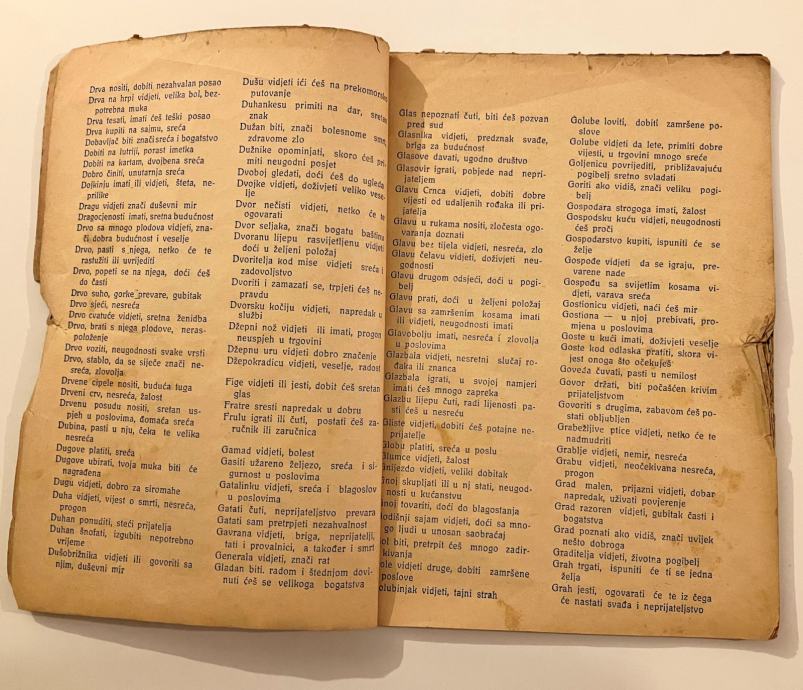 Drva nositi, dobiti nezahvalan posao
Drva na hrpi vidjeti, velika bol, bez-
potrebna muka
Drva tesati, imati ćeš teški posao
Drva kupiti na sajmu, sreća
Dobavljač biti znači sreća i bogatstvo
Dobiti na lutriji, porast imetka
Dobiti na kartam, dvojbena sreća
Dobro činiti, unutarnja sreća
Dojkinju imati ili vidjeti, šteta, ne-
prilike
Dragu vidjeti znači duševni mir
Dragocjenosti imati, sretna budućnost
Drvo sa mnogo plodova vidjeti, zna-
či dobra budućnost i veselje
Drvo, pasti s njega, netko će te
rastužiti ili uvrijediti
Drvo, popeti se na njega, doći ćeš
do časti
Drvo suho, gorke prevare, gubitak
Drvo sjeći, nesreća
Drvo cvatuće vidjeti, sretna ženidba
Drvo, brati s njega plodove, neras-
položenje
Drvo voziti, neugodnosti svake vrsti
Drvo, stablo, da se siječe znači ne-
sreća, zlovolja
Drvene cipele nositi, buduća tuga
Drveni crv, nesreća, žalost
Drvenu posudu nositi, sretan us-
pjeh u poslovima, domaća sreća
Dubina, pasti u nju, čeka te velika
nesreća
Dugove platiti, sreća
Dugove ubirati, tvoja muka biti će
nagrađena
Dugu vidjeti, dobro za siromahe
Duha vidjeti, vijest o smrti, nesreća,
progon
Duhan ponuditi, steći prijatelja
Duhan šnofati, izgubiti nepotrebno
vrijeme
Dušobrižnika vidjeti ili govoriti sa
njim, duševni mir
Dušu vidjeti ići ćeš na prekomorsko
putovanje
Duhankesu primiti na dar, sretan
znak
Dužan biti, znači bolesnome smrt,
zdravome zlo
Dužnike opominjati, skoro ćeš pri-
miti neugodni posjet
Dvoboj gledati, doći ćeš do ugleda
Dvojke vidjeti, doživjeti veliko vese-
lje
Dvor nečisti vidjeti, netko će te
ogovarati
Dvor seljaka, znači bogatu baštinu
Dvoranu lijepu rasvijetljenu vidjeti
doći u željeni položaj
Dvoritelja kod mise vidjeti sreća i
zadovoljstvo
Dvoriti i zamazati se, trpjeti ćeš ne-
pravdu
Dvorsku kočiju vidjeti, napredak u
službi
Džepni nož vidjeti ili imati, progon
neuspjeh u trgovini
Džepnu uru vidjeti dobro značenje
Džepokradicu vidjeti, veselje, radost
Fige vidjeti ili jesti, dobit ćeš sretan
glas
Fratre sresti napredak u dobru
Frulu igrati ili čuti, postati ćeš za-
ručnik ili zaručnica
Gamad vidjeti, bolest
Gasiti užareno željezo, sreća i si-
gurnost u poslovima
Gatalinku vidjeti, sreća i blagoslov
u poslovima
Gatati čuti, neprijateljstvo prevara
Gatati sam pretrpjeti nezahvalnost
Gavrana vidjeti, briga, neprijatelji,
tati i provalnici, a također i smrt
Generala vidjeti, znači rat
Gladan biti. radom i štednjom dovi-
nuti ćeš se velikoga bogatstva
Glas nepoznati čuti, biti ćeš pozvan
pred sud
Glasnika vidjeti, predznak svađe,
briga za budućnost
Glasove davati, ugodno društvo
Glasovir igrati, pobjede nad nepri-
jateljem
Glavu Crnca vidjeti, dobiti dobre
vijesti od udaljenih rođaka ili pri-
jatelja
Glavu u rukama nositi, zločesta ogo-
varanja doznati
Glavu bez tijela vidjeti, nesreća, zlo
Glavu ćelavu vidjeti, doživjeti neu-
godnosti
Glavu drugom odsjeći, doći u pogi-
belj
Glavu prati, doći u željeni položaj
Glavu sa zamršenim kosama imati
ili vidjeti, neugodnosti imati
Glavobolju imati, nesreća i zlovolja
u poslovima
Glazbala vidjeti, nesretni slučaj ro-
đaka ili znanca
Glazbala igrati, u svojoj namjeri
imati ćeš mnogo zapreka
Glazbu lijepu čuti, radi lijenosti pa-
sti ćeš u nesreću
Gliste vidjeti, dobiti ćeš potajne ne-
prijatelje
Globu platiti, sreća u poslu
Glumce vidjeti, žalost
Gnijezdo vidjeti, veliki dobitak
Gnoj skupljati ili u nj stati, neugod-
nosti u kućanstvu
Gnoj tovariti, doći do blagostanja
Godišnji sajam vidjeti, doći sa mno-
go ljudi u unosan saobraćaj
ol biti, pretrpit ćeš mnogo zadir-
kivanja
ole vidjeti druge, dobiti zamršene
poslove
olubinjak vidjeti, tajni strah
Golube loviti, dobiti zamršene po-
slove
Golube vidjeti da lete, primiti dobre
vijesti, u trgovini mnogo sreće
Goljenicu povrijediti, približavajuću
pogibelj sretno svladati
Goriti ako vidiš, znači veliku pogi-
belj
Gospodara strogoga imati, žalost
Gospodsku kuću vidjeti, neugodnosti
ćeš proći
Gospodarstvo kupiti, ispuniti će se
želje
Gospođe vidjeti da se igraju, pre-
varene nade
Gospođu sa svijetlim kosama vi-
djeti, varava sreća
Gostionicu vidjeti, naći ćeš mir
Gostiona — u njoj prebivati, pro-
mjena u poslovima
Goste u kući imati, doživjeti veselje
Goste kod odlaska pratiti, skora vi-
jest onoga što očekuješ
Goveda čuvati, pasti u nemilost
Govor držati, biti počašćen krivim
prijateljstvom
Govoriti s drugima, zabavom ćeš po-
stati obljubljen
Grabežljive ptice vidjeti, netko će te
nadmudriti
Grablje vidjeti, nemir, nesreća
Grabu vidjeti, neočekivana nesreća,
progon
Grad malen, prijazni vidjeti, dobar
napredak, uživati povjerenje
Grad razoren vidjeti, gubitak časti i
bogatstva
Grad poznati ako vidiš, znači uvijek
nešto dobroga
Graditelja vidjeti, životna pogibelj
Grah trgati, ispuniti će ti se jedna
želja
Grah jesti, ogovarati će te iz čega
će nastati svađa i neprijateljstvo